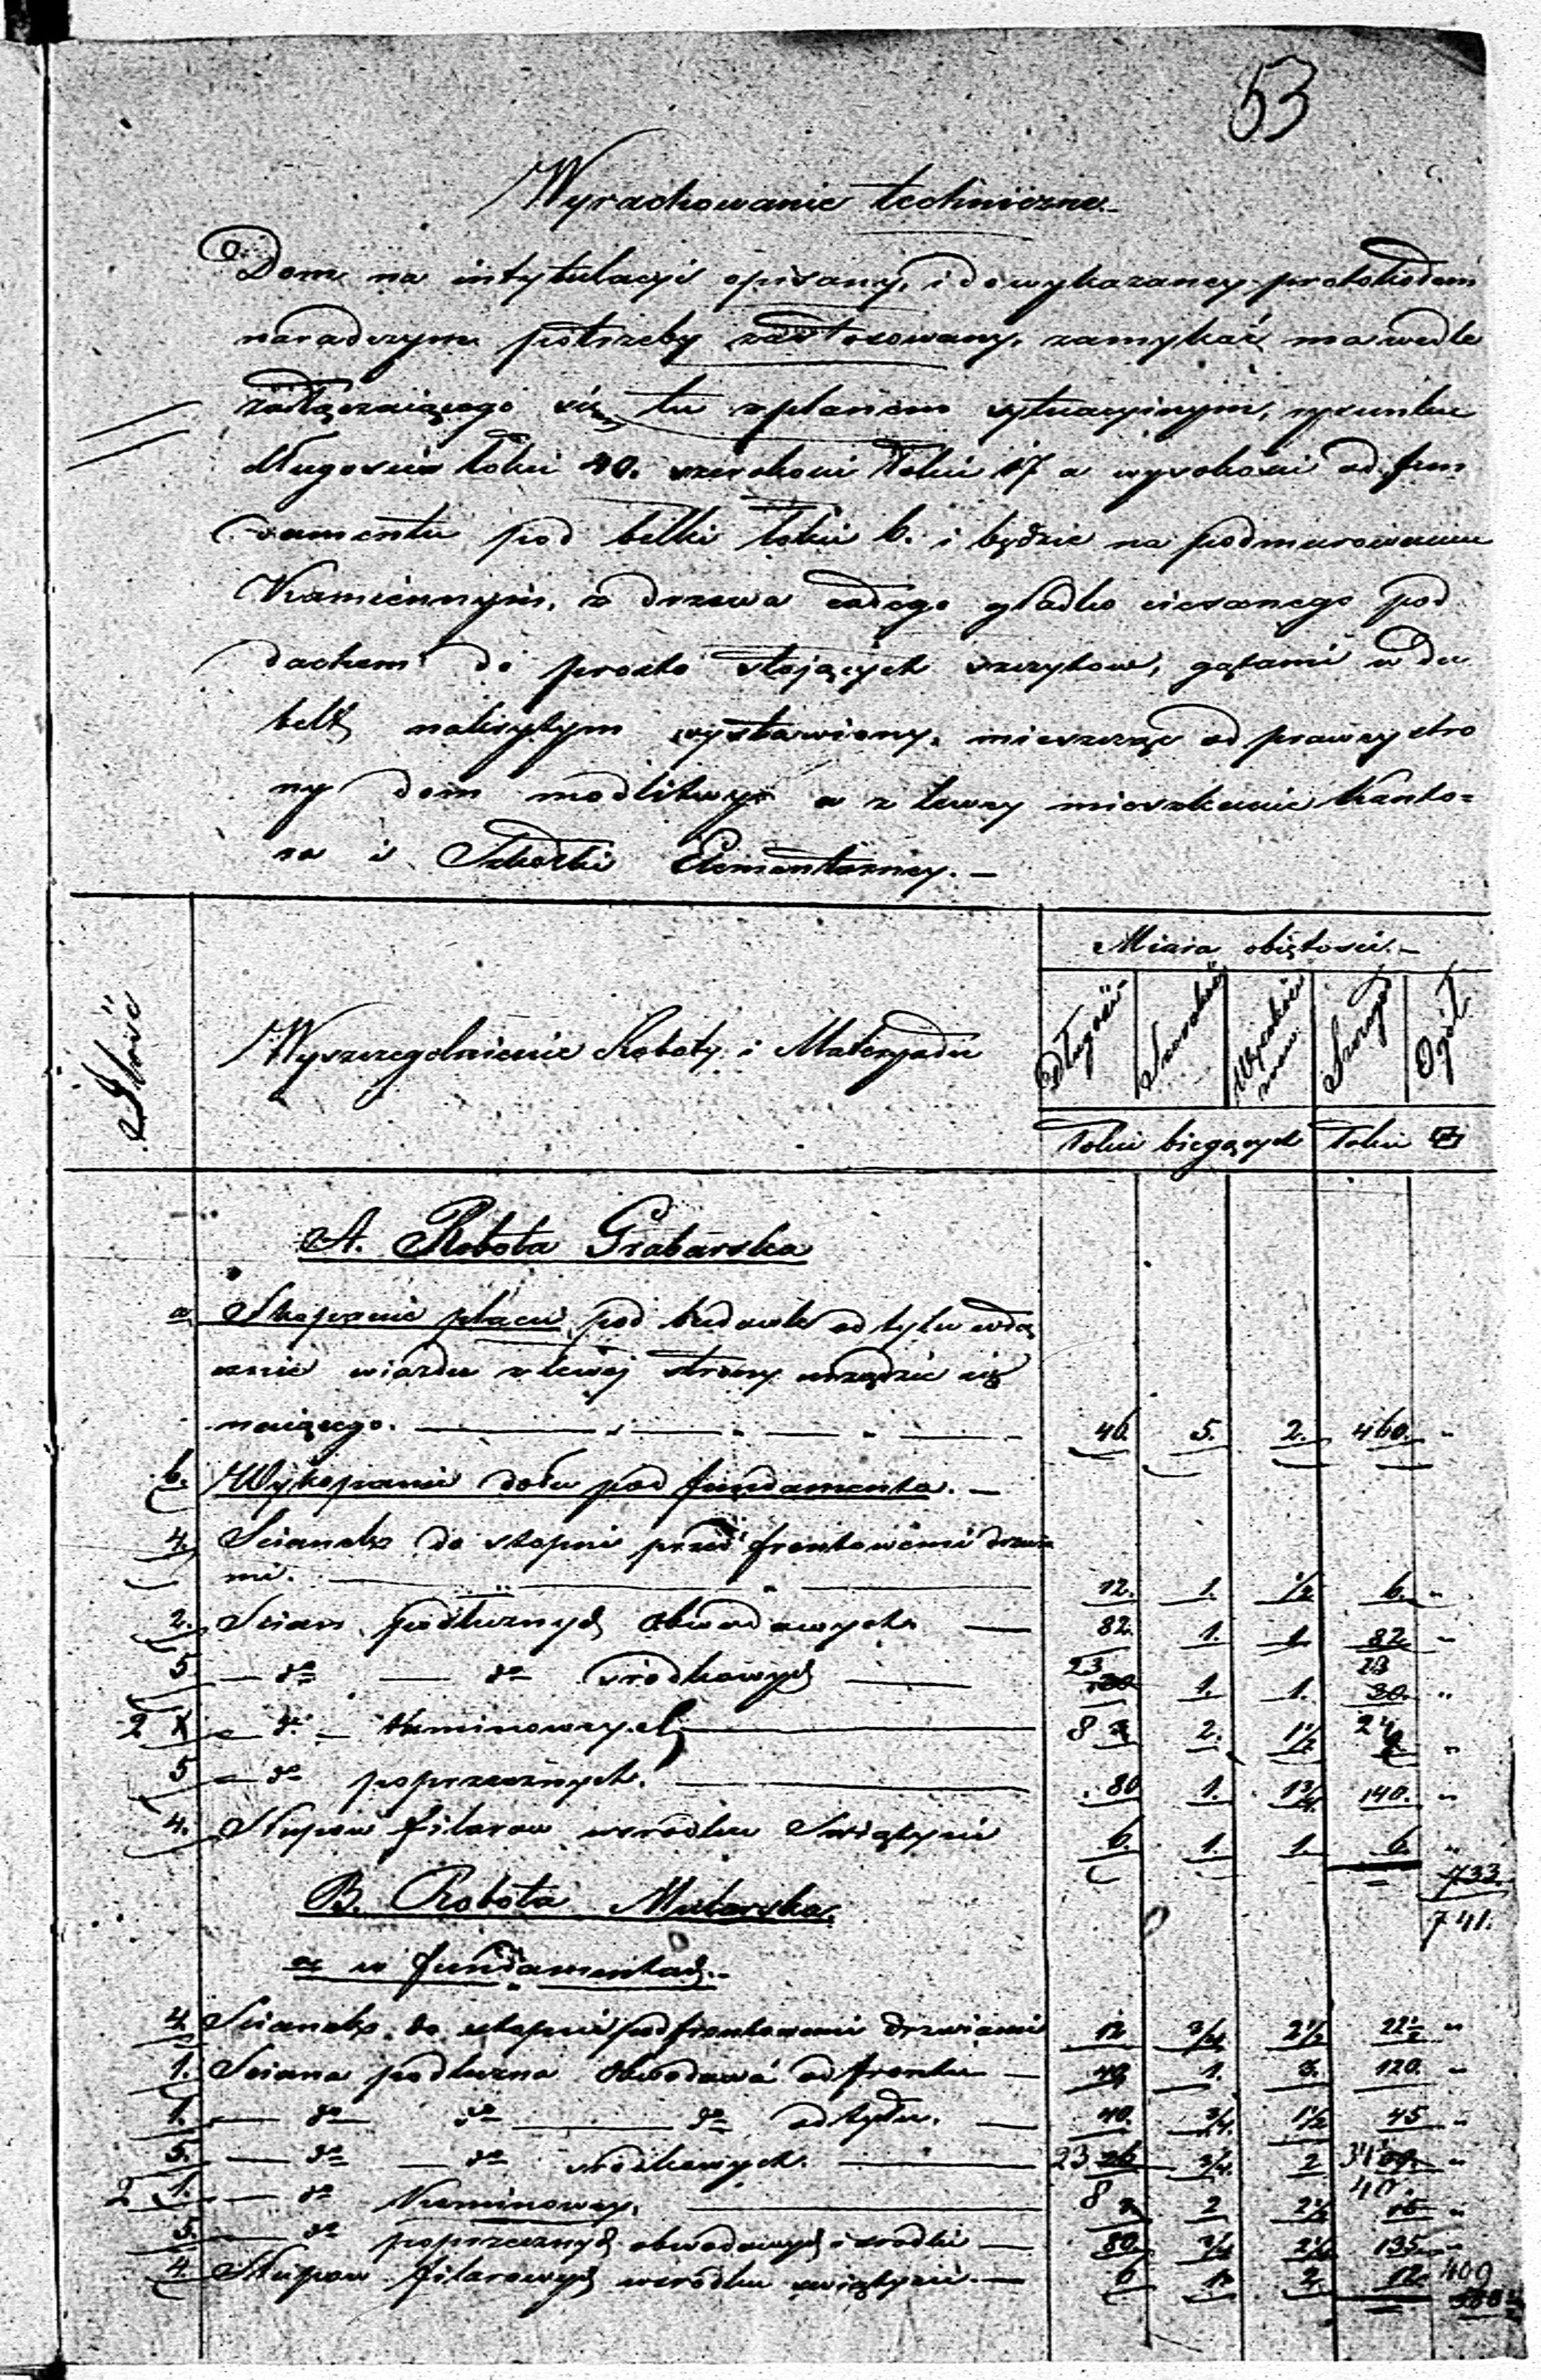 53
Wyrachowanie techniczne.
Dom na intytulacyi opisany, i do wykazaney protokołem
naradczym potrzeby zastosowany, zamykać ma wedle
załączaiącego się tu z planem sytuacyinym, rysunku
długości łokci 40. szerokości łokci 17 a wysokości od fun
damentu pod belki łokci 6. i będzie na podmurowaniu
Kamiennym, z drzewa całego gładko ciesanego pod
dachem do prosto stojących szczytow, gątami w du
belt nakrytym wystawiony, mieszcząc od prawey stro
ny dom modlitwy a z lewey mieszkanie Kanto=
ra i Szkołki Elementarney. –
Ilość
Wyszczegolnienie Roboty i Materyału
Miara obiętości. –
Długość Szerokość Wysokość Szczegół Ogół
Łokci bieżących Łokci
A. Robota Grabarska
a Skopanie placu pod budowle od tyłu włą
cznie wiazdu z lewej strony urządzić się
maiącego. 46. 5. 2. 460. "
b. Wykopanie dołu pod fundamenta. –
4. Scianek do stopni przed frontowemi drzwia
mi. 12. 1. ½ 6. "
2. Scian podłużnych obwodowych 82. 1. 1 82 "
5 – do – do srodkowych 23 30 1. 1. 23 30. "
2 1 – do – Kominowych 8 2. 1½ 24 "
5 – do poprzecznych. 80 1. 1¾ 140. "
4. Słupow filarow wsrodku Swiątyni 6. 1. 1. 6. "
733.
741.
B. Robota Mularska.
a w fundamentach.
4. Scianek do stopni pod frontowemi drzwiami 12 ¾ 2½ 22½ "
1. Sciana podłużna obwodowa od frontu – 40 1. 3. 120. "
1. – do – do – do od tyłu. – 40. ¾ 1½ 45 "
5. – do – do srodkowych. 23 ¾ 2 34½ "
2 1. – do Kominowey. 8 2 2½ 40. "
5. – do poprzecznych obwodowych i srodki – 80 ¾ 2¼ 135 "
4. Słupow filarowych wsrodku swiątyni. – 6 1 2. 12. 409